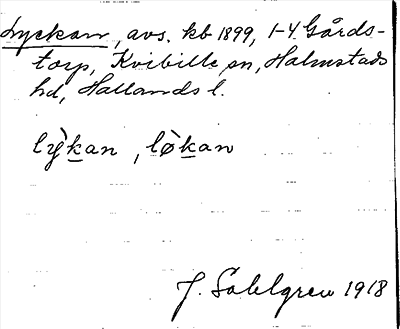 Lyckan, avs. kb 1899, 1-4 Gårds-
torp, Kvibille sn, Halmstads
hd, Hallands l.
lỳkan, lø̀kan
J. Sahlgren 1918